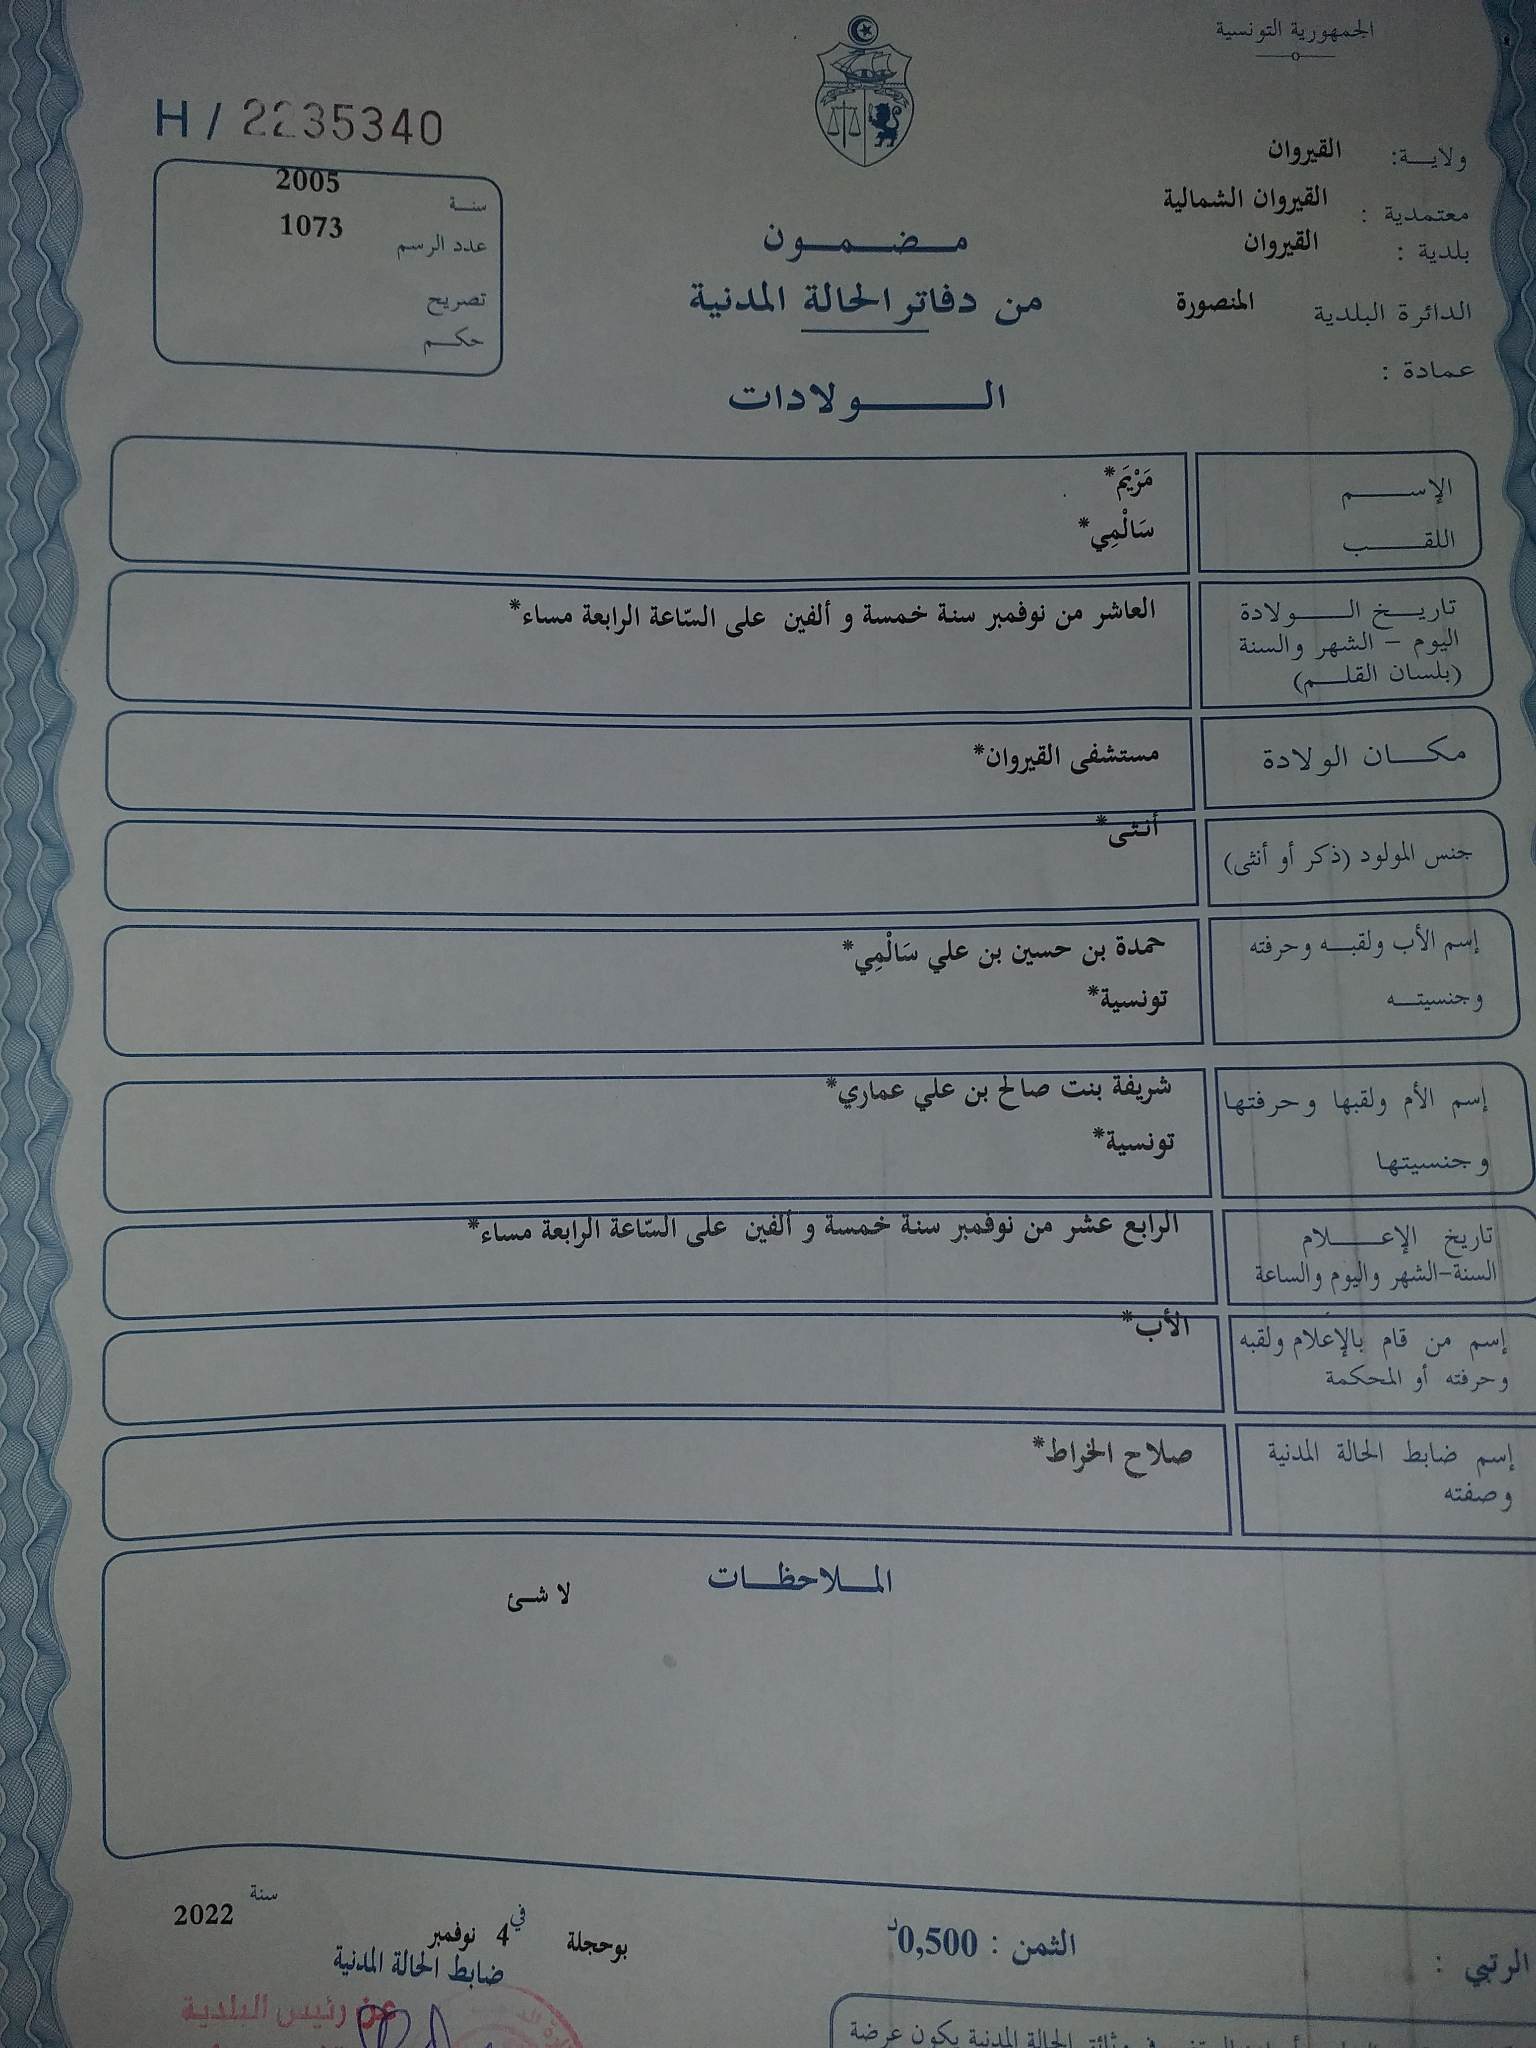 الجمهورية التونسية
H / 2235340
ولاية: القيروان
معتمدية : القيروان الشمالية
بلدية : القيروان
الدائرة البلدية المنصورة
عمادة :
سنة 2005
عدد الرسم 1073
تصريح
حكم
مضمون
من دفاتر الحالة المدنية
الولادات
الإسم مَرْيَم*
اللقب سَالْمِي*
تاريخ الولادة العاشر من نوفمبر سنة خمسة و ألفين على السّاعة الرابعة مساء*
اليوم - الشهر والسنة
(بلسان القلم)
مكان الولادة مستشفى القيروان*
جنس المولود (ذكر أو أنثى) أنثى*
إسم الأب ولقبه وحرفته حمدة بن حسين بن علي سَالْمِي*
وجنسيته تونسية*
إسم الأم ولقبها وحرفتها شريفة بنت صالح بن علي عماري*
وجنسيتها تونسية*
تاريخ الإعلام الرابع عشر من نوفمبر سنة خمسة و ألفين على السّاعة الرابعة مساء*
السنة-الشهر واليوم والساعة
إسم من قام بالإعلام ولقبه الأب*
وحرفته أو المحكمة
إسم ضابط الحالة المدنية صلاح الخراط*
وصفته
الملاحظات
لا شئ
الرتبي :
الثمن : 0,500د
بوحجلة في 4 نوفمبر سنة 2022
ضابط الحالة المدنية
عن رئيس البلدية
الحالة المدنية يكون عرضة